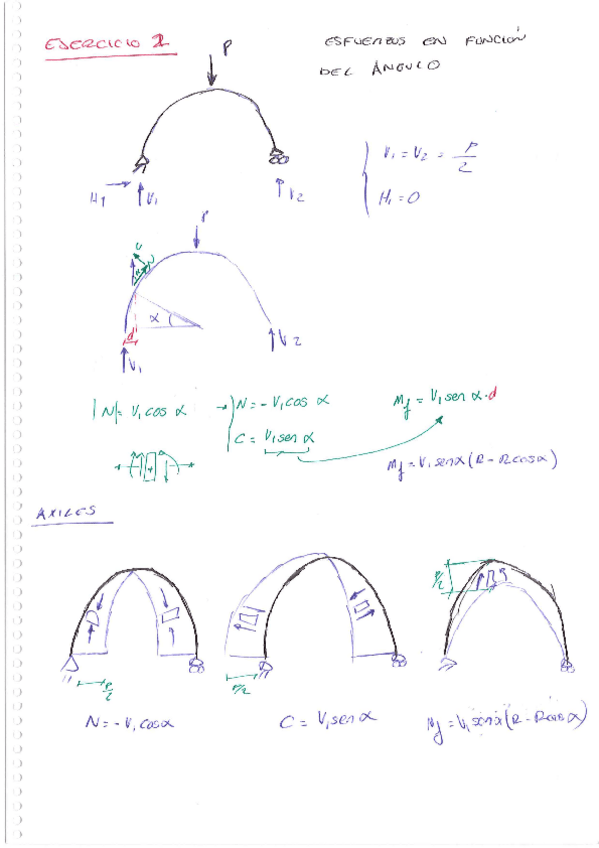 EJERCICIO 2
ESFUERZOS EN FUNCIÓN
DEL ÁNGULO
P
V₁ = V₂ = P/2
H₁ = 0
H₁ V₁ V₂
P
α
d
V₁ V₂
|N| = V₁ cos α → N = -V₁ cos α
C = V₁ sen α
Mf = V₁ sen α · d
Mf = V₁ sen α (R - R cos α)
AXILES
P/2
P/2
P/2
N = - V₁ cos α
C = V₁ sen α
Mf = V₁ sen α (R - R cos α)